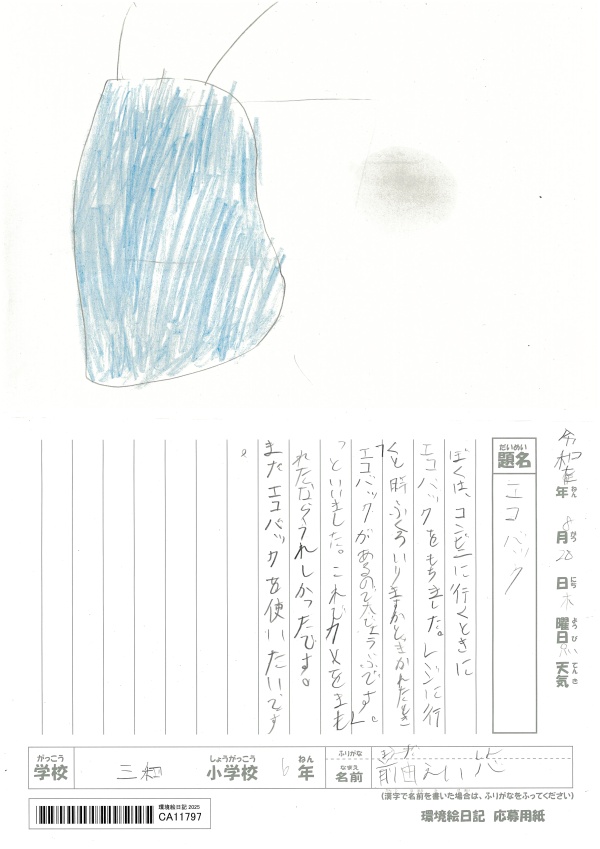 令和 年 8月28日 木曜日 天気
ねん がつ にち ようび てんき
だいめい
題名
エコバック
ぼくは、コンビニに行くときに
エコバックをもちました。レジに行
くと 、ふくろいりますかときかれたとき
「エコバックがあるので大じょうぶです。」
っといいました。これでカメをまも
れたならうれしかったです。
またエコバックを使いたいです
。
がっこう
学校
三和
しょうがっこう
小学校
6
ねん
年
ふりがな
なまえ
名前
前田えい
(漢字で名前を書いた場合は、ふりがなをふってください)
環境絵日記 2025
CA11797
環境絵日記 応募用紙